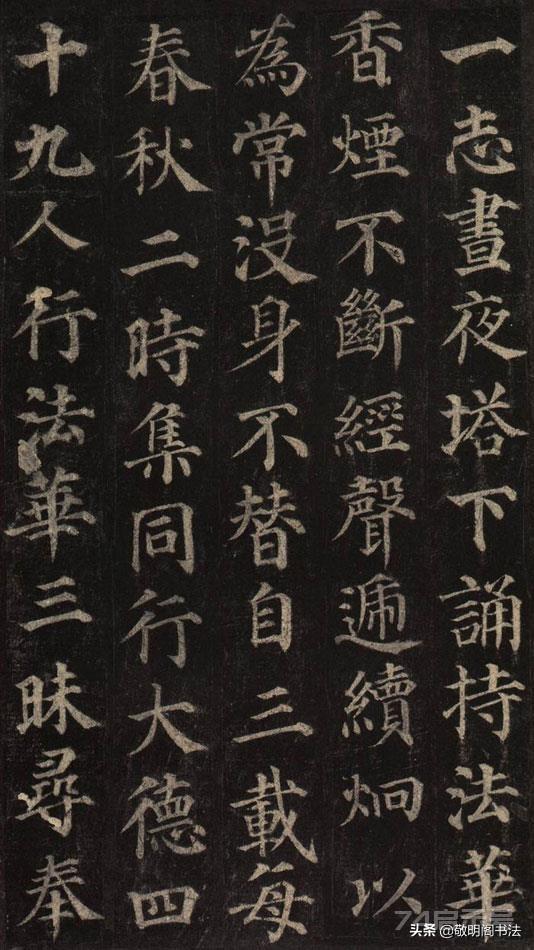 一志晝夜塔下誦持法華
香煙不斷經聲遞續炯以
為常没身不替自三載每
春秋二時集同行大德四
十九人行法華三昧尋奉
头条 @敬明阁书法